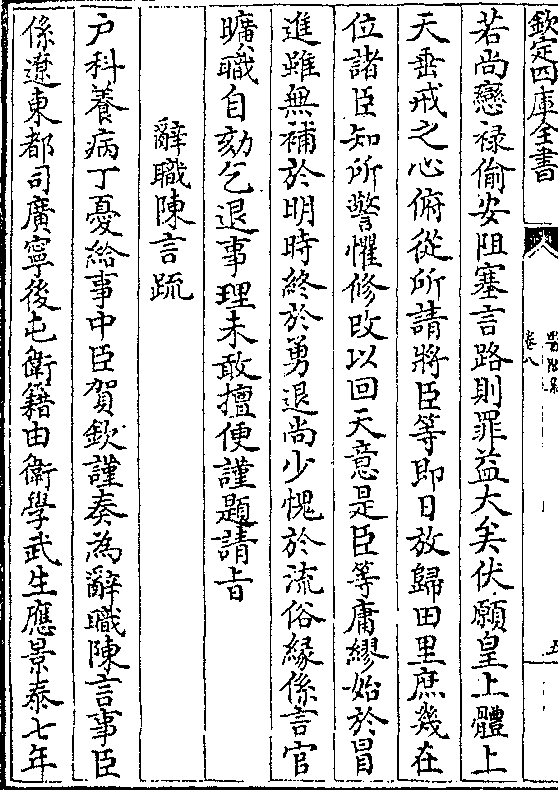 欽定四庫全書
卷八
若尚戀祿偷安阻塞言路則罪益大矣伏願皇上體上
天垂戒之心俯從所請將臣等即日放歸田里庶幾在
位諸臣知所警懼修改以回天意是臣等庸繆始於冒
進雖無補於明時終於勇退尚少愧於流俗緣係言官
曠職自劾乞退事理未敢擅便謹題請旨
辭職陳言疏
户科養病丁憂給事中臣賀欽謹奏為辭職陳言事臣
係遼東都司廣寧後屯衛籍由衛學武生應景泰七年